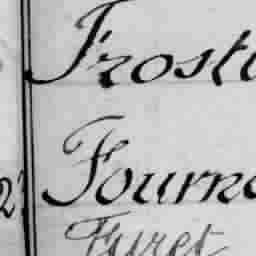 Frost
Fourn
2
Furet